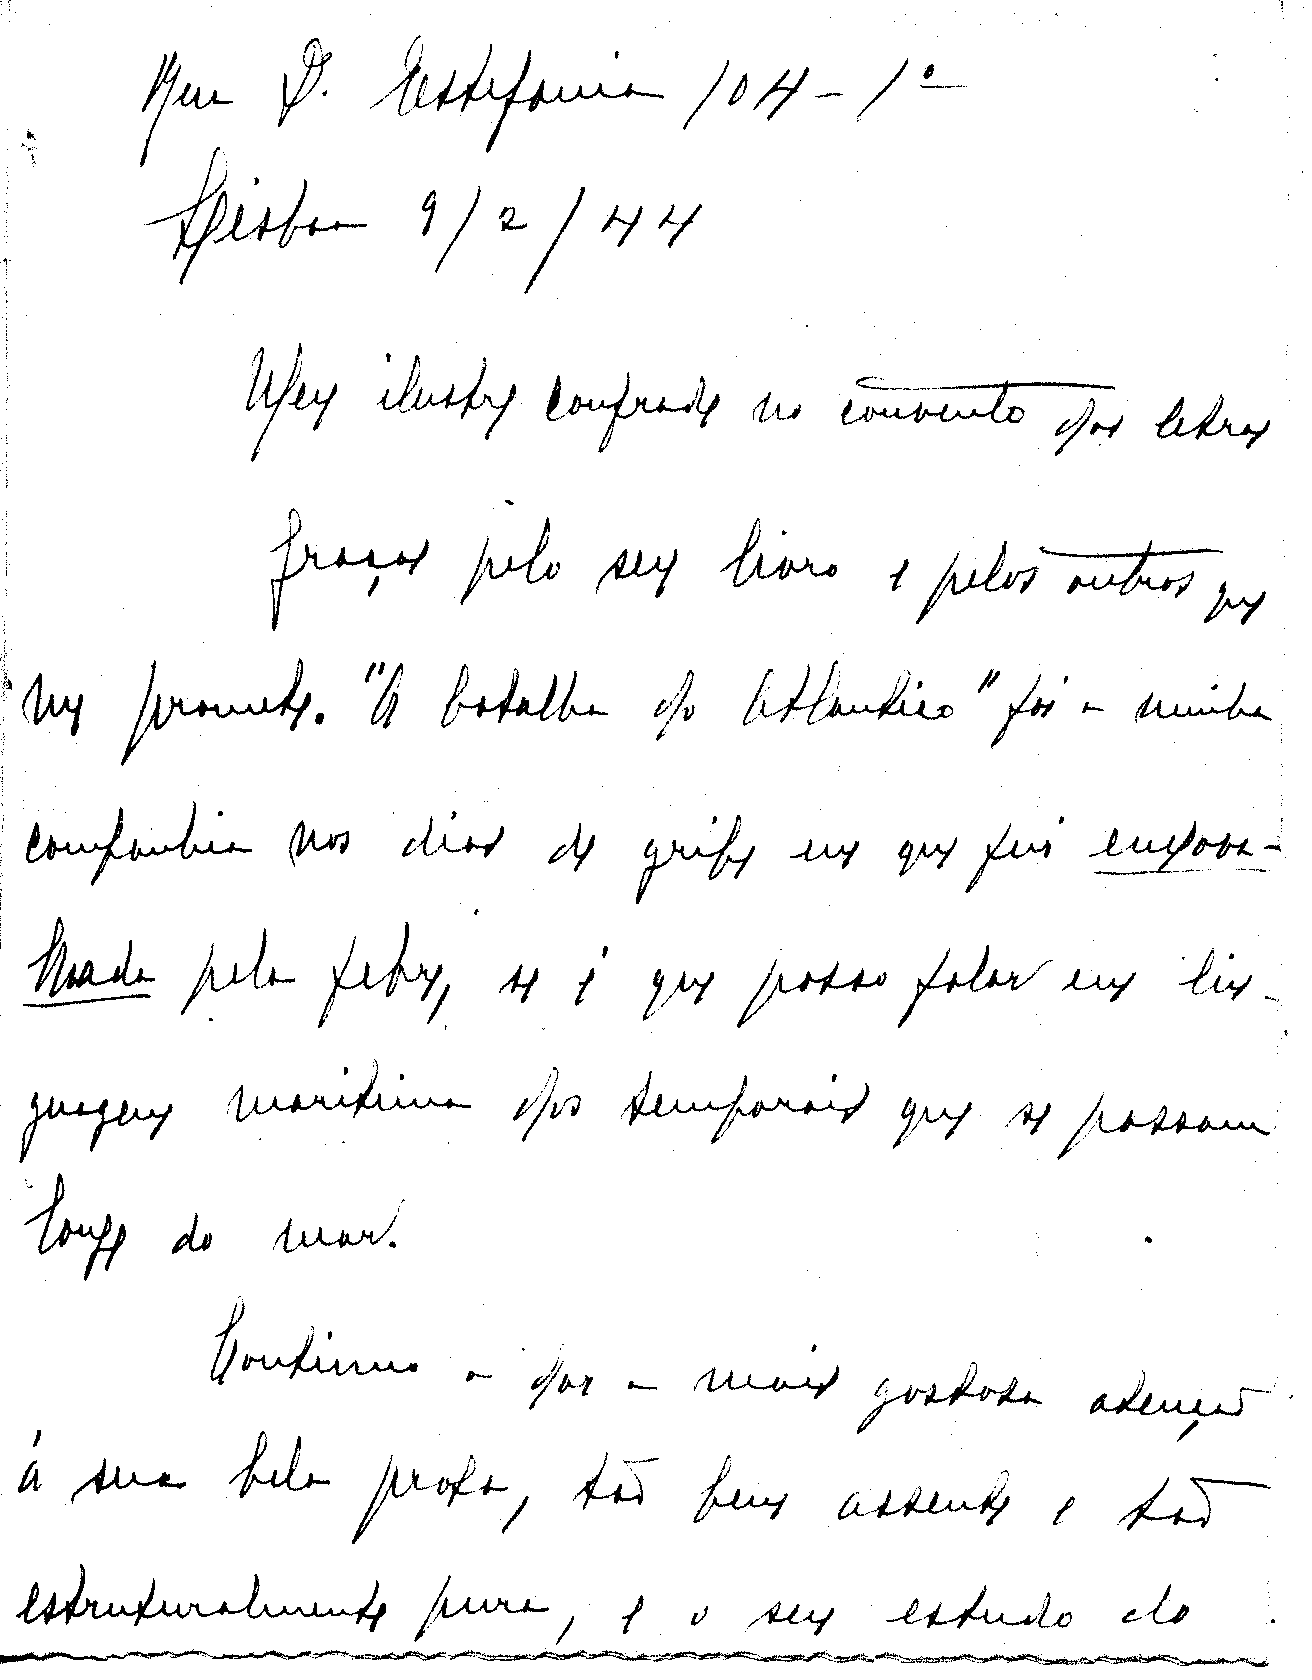 Rua D. Estefania 104-1º
Lisboa 9/2/44
Meu ilustre confrade no convento das letras
Graças pelo seu livro e pelos outros que
me promete. "A batalha do Atlantico" foi a minha
companhia nos dias de gripe em que fui
pela febre, se é que posso falar em lin-
guagem maritima dos temporais que se passam
longe do mar.
Continuo a dar a mais gostosa atenção
á sua bela prosa, tão bem assente e tão
estruturalmente pura, e o seu estudo do